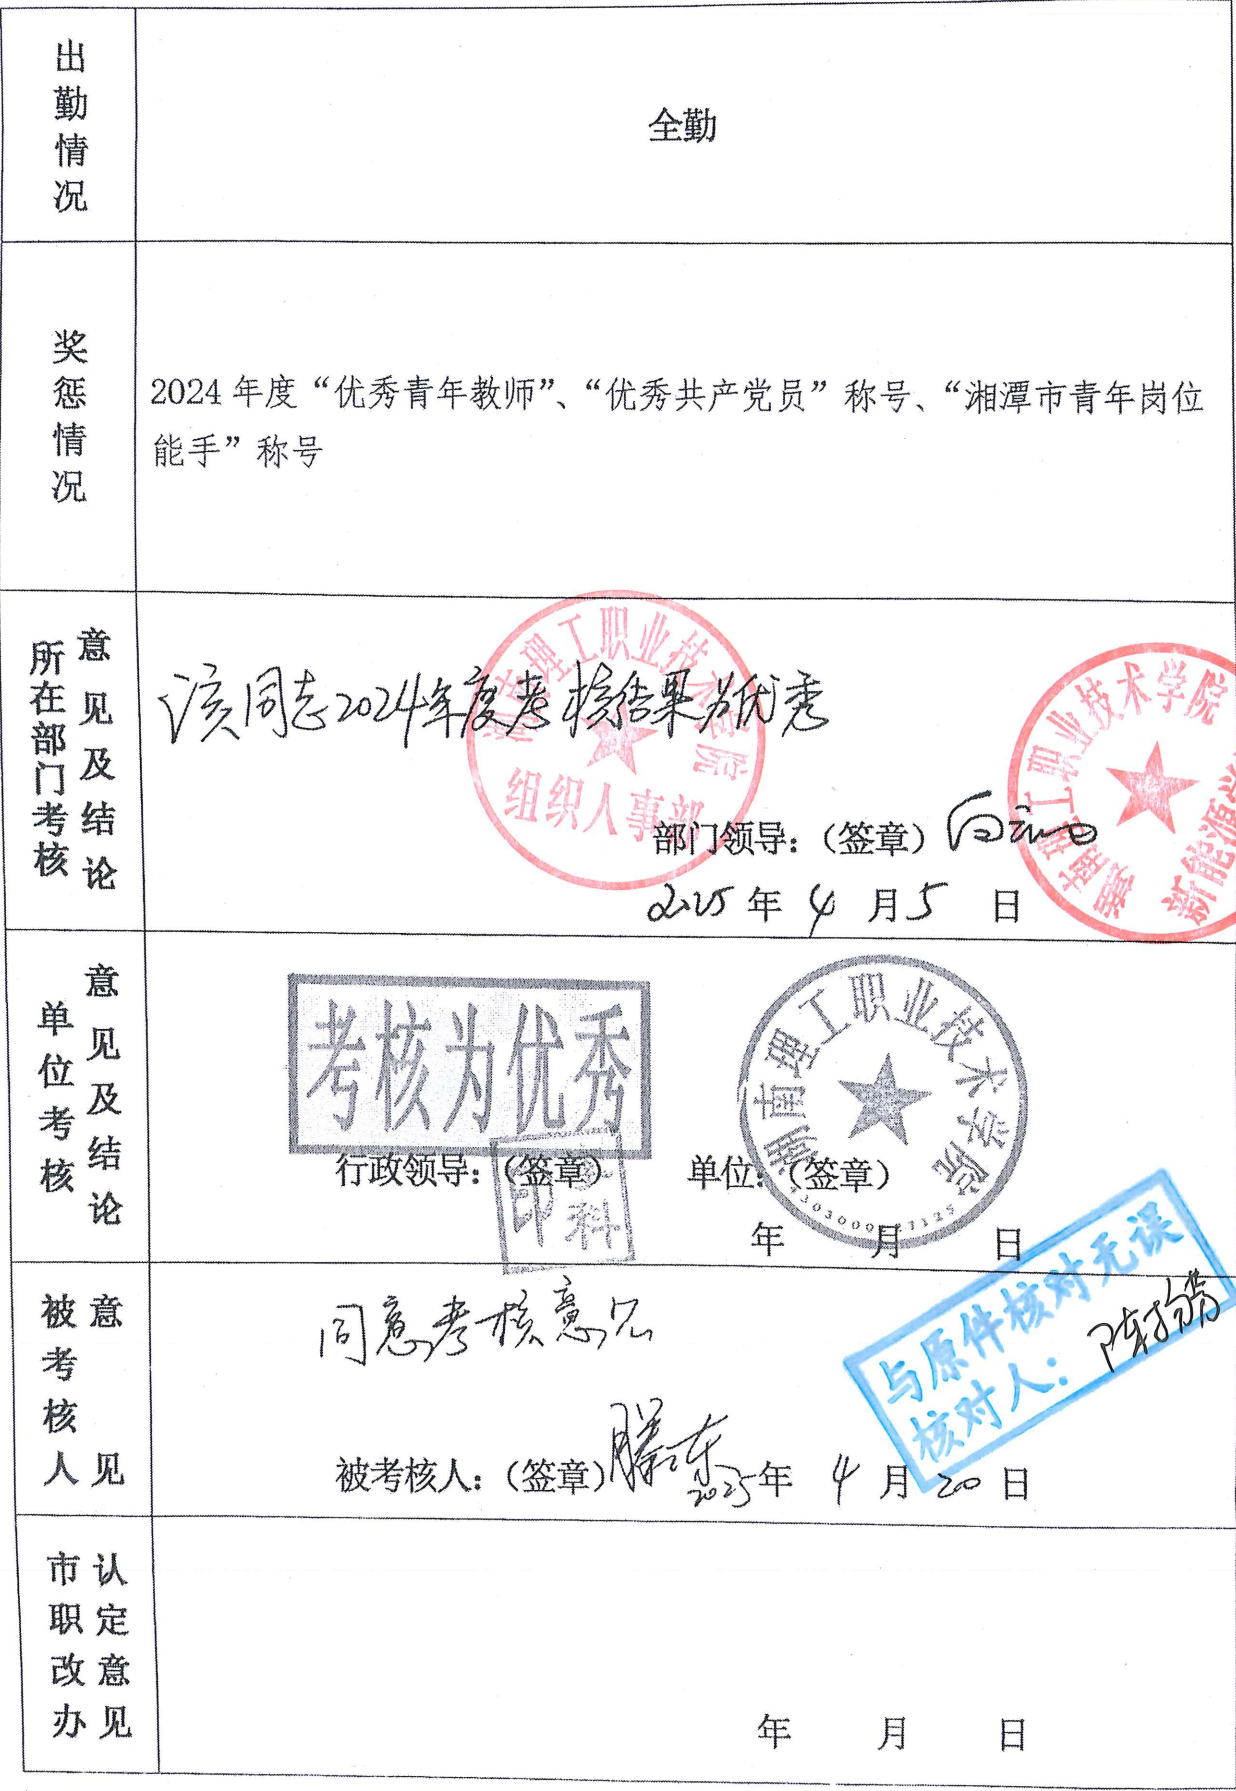 出勤情况
全勤
奖惩情况
2024 年度“优秀青年教师”、“优秀共产党员”称号、“湘潭市青年岗位
能手”称号
所在部门考核
意见及结论
该同志2024年度考核结果为优秀
湖南理工职业技术学院
组织人事部
湖南理工职业技术学院
新能源
部门领导：（签章）
2025 年 4 月 5 日
单位考核
意见及结论
考核为优秀
湖南理工职业技术学院
行政领导：（签章）
单位：（签章）
年 月 日
与原件核对无误
核对人：
被考核人
意见
同意考核意见
被考核人：（签章）滕冻 2025年 4 月 20 日
市职改办
认定意见
年 月 日